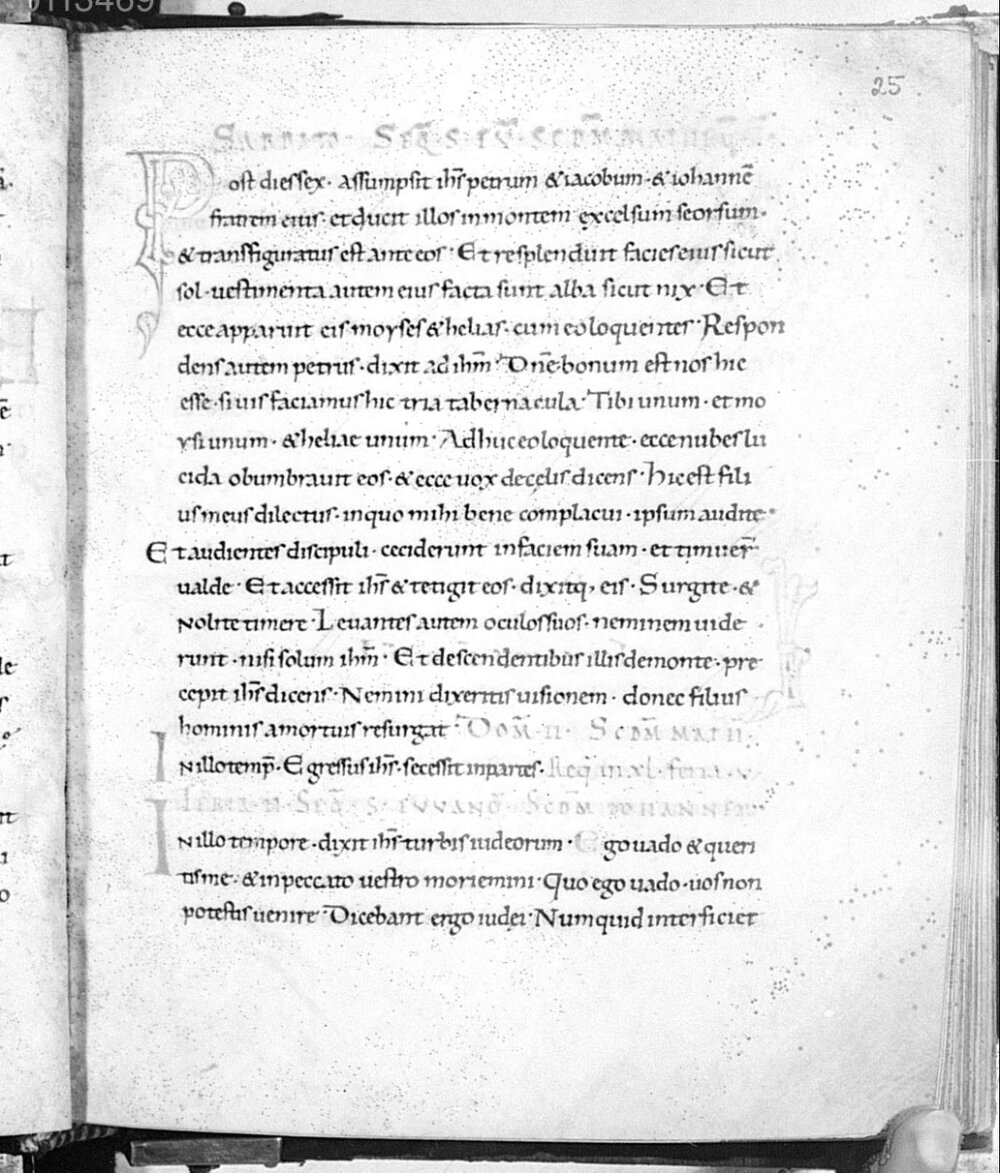 25
SABBATO. SEQ̄. S. EV̄. SCDM MATH
Post dies sex. assumpsit ihs̄ petrum & iacobum. & iohannē
fratrem eius. et ducit illos in montem excelsum seorsum.
& transfiguratus est ante eos. Et resplenduit facies eius sicut
sol. uestimenta autem eius facta sunt alba sicut nix. Et
ecce apparuit eis moyses & helias. cum eo loquentes. Respon
dens autem petrus. dixit ad ihm̄. Dn̄e bonum est nos hic
esse. si uis faciamus hic tria tabernacula. Tibi unum. et mo
ysi unum. & heliae unum. Adhuc eo loquente. ecce nubes lu
cida obumbrauit eos. & ecce uox de celis dicens. Hic est fili
us meus dilectus. in quo mihi bene complacui. ipsum audite.
Et audientes discipuli. ceciderunt in faciem suam. et timuer̄
ualde. Et accessit ihs̄ & tetigit eos. dixitq, eis. Surgite. &
Nolite timere. Leuantes autem oculos suos. neminem uide
runt. nisi solum ihm̄. Et descendentibus illis de monte. pre
cepit ihs̄ dicens. Nemini dixeritis uisionem. donec filius
hominis a mortuis resurgat. DOM̄. II. SCDM MATH.
IN illo temp̄. Egressus ihs̄. secessit in partes. Req̄ in xl. feria. v.
FERIA. II. SEQ̄. S. EVVANḠ. SCDM IOHANNEM.
IN illo tempore. dixit ihs̄ turbis iudeorum. Ego uado & queri
tis me. & in peccato uestro moriemini. Quo ego uado. uos non
potestis uenire. Dicebant ergo iudei. Numquid interficiet